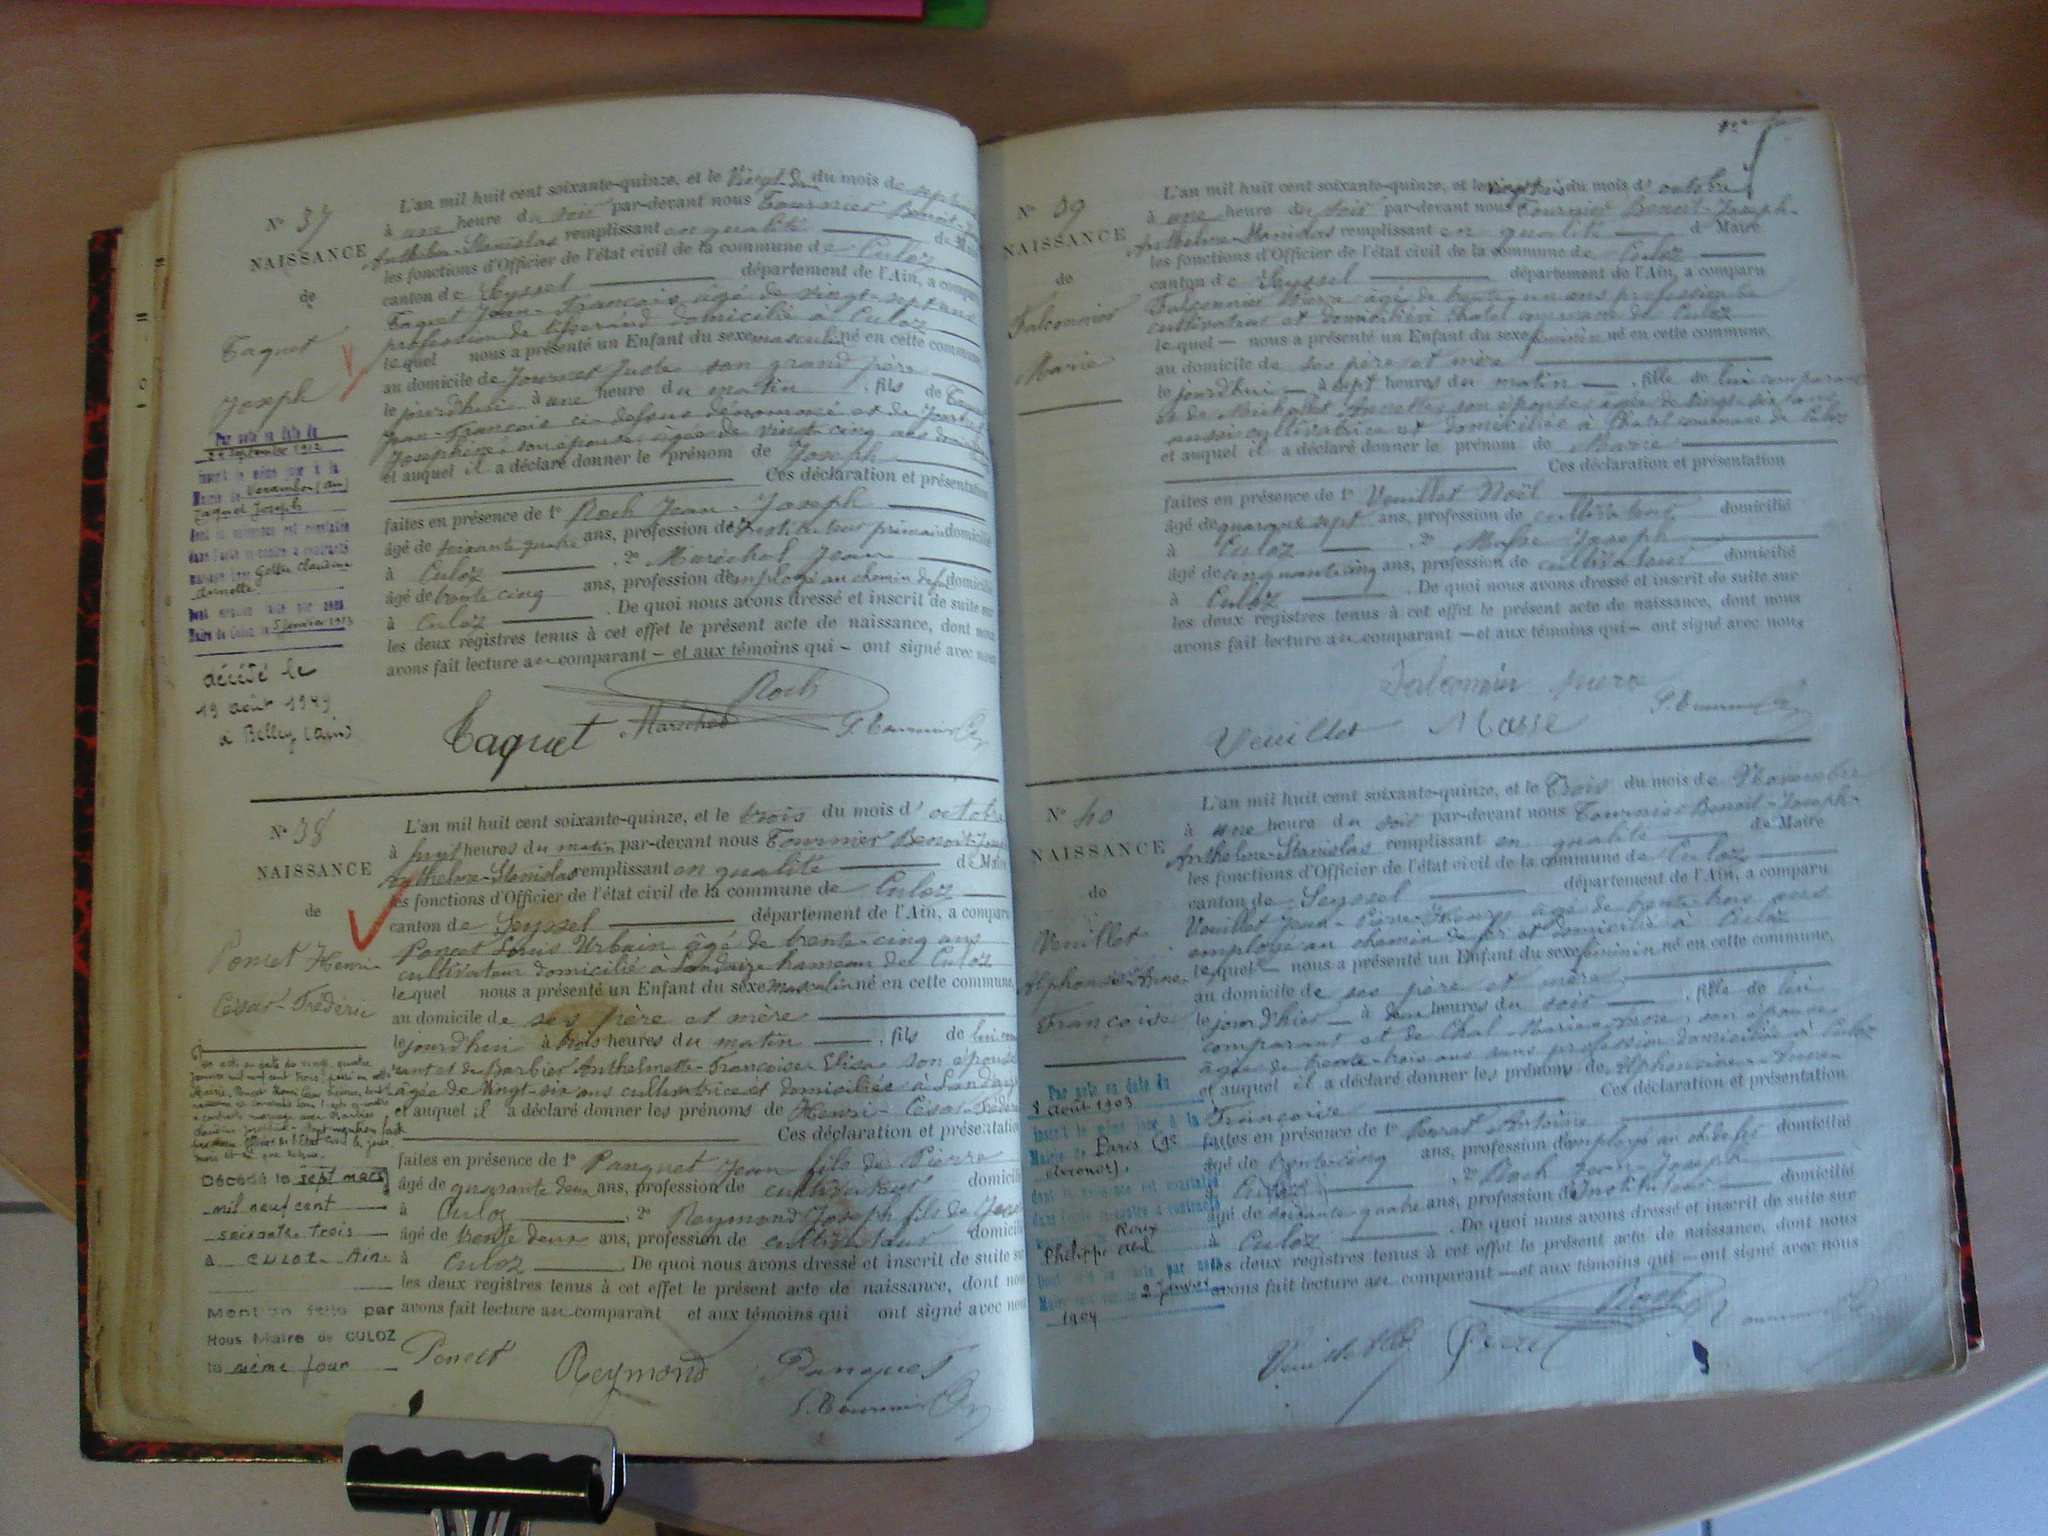 N° 37
NAISSANCE
de
Taquet
Joseph
Par acte en date du
septembre 1912
inscrit le même jour à la
Mairie de (Ain)
Taquet Joseph
dont la naissance est constatée
dans l'acte ci-contre a contracté
mariage avec Claudine
Dont mention faite par nous
Maire de Culoz le 5 janvier 1913
décédé le
19 août 1949
à Belley (Ain)
L'an mil huit cent soixante-quinze, et le Vingt du mois de
à une heure du soir par-devant nous Tournier Benoit-
Anthelme-Stanislas remplissant en qualité de Maire
les fonctions d'Officier de l'état civil de la commune de Culoz
canton de Seyssel département de l'Ain, a comparu
Taquet Jean-François, âgé de vingt-sept ans
profession de tisserand domicilié à Culoz
lequel nous a présenté un Enfant du sexe masculin né en cette commune
au domicile de Journet Juste son grand père
le jourd'hui à une heure du matin, fils de
Jean-François ci-dessus dénommé et de
Joséphine, son épouse, âgée de vingt-cinq ans
et auquel il a déclaré donner le prénom de Joseph
Ces déclaration et présentation
faites en présence de 1° Roch Jean-Joseph
âgé de soixante quatre ans, profession d'Instituteur primaire domicilié
à Culoz . 2° Maréchal Jean
âgé de trente cinq ans, profession d'employé au chemin de fer domicilié
à Culoz . De quoi nous avons dressé et inscrit de suite sur
les deux registres tenus à cet effet le présent acte de naissance, dont nous
avons fait lecture au comparant – et aux témoins qui – ont signé avec nous
Roch
Taquet Maréchal
N° 38
NAISSANCE
de
Poncet Henri
César-Frédéric
Décédé le sept mars
mil neuf cent
soixante trois
à CULOZ Ain
Mention faite par
Nous Maire de CULOZ
le même jour
L'an mil huit cent soixante-quinze, et le trois du mois d'octobre
à huit heures du matin par-devant nous Tournier Benoit-
Anthelme-Stanislas remplissant en qualité de Maire
les fonctions d'Officier de l'état civil de la commune de Culoz
canton de Seyssel département de l'Ain, a comparu
Poncet Louis Urbain âgé de trente-cinq ans
cultivateur domicilié à Landaize hameau de Culoz
lequel nous a présenté un Enfant du sexe masculin né en cette commune,
au domicile de ses père et mère
le jourd'hui à trois heures du matin — , fils de lui
et de Barbier Anthelmette-Françoise-Elisa son épouse
âgée de vingt-six ans cultivatrice et domiciliée à
et auquel il a déclaré donner les prénoms de Henri-César-Frédéric
Ces déclaration et présentation
faites en présence de 1° Panquet Jean fils de Pierre
âgé de quarante deux ans, profession de cultivateur domicilié
à Culoz , 2° Reymond Joseph fils de
âgé de trente deux ans, profession de cultivateur domicilié
à Culoz . De quoi nous avons dressé et inscrit de suite sur
les deux registres tenus à cet effet le présent acte de naissance, dont nous
avons fait lecture au comparant et aux témoins qui ont signé avec nous
Poncet Reymond Panquet
N° 39
NAISSANCE
de
Falconnier
Marie
L'an mil huit cent soixante-quinze, et le vingt trois du mois d'octobre
à une heure du soir par-devant nous Tournier Benoit-Joseph-
Anthelme-Stanislas remplissant en qualité de Maire
les fonctions d'Officier de l'état civil de la commune de Culoz
canton de Seyssel département de l'Ain, a comparu
Falconnier Pierre âgé de trente un ans profession de
cultivateur et domicilié à Chatel commune de Culoz
lequel — nous a présenté un Enfant du sexe féminin né en cette commune,
au domicile de ses père et mère
le jourd'hui — à sept heures du matin — , fille de lui comparant
et de Michallet son épouse, âgée de vingt-six ans
aussi cultivatrice et domiciliée à Chatel commune de Culoz
et auquel il a déclaré donner le prénom de Marie
Ces déclaration et présentation
faites en présence de 1° Veuillet Noël
âgé de quarante sept ans, profession de cultivateur domicilié
à Culoz — . 2° Masse Joseph
âgé de cinquante cinq ans, profession de cultivateur domicilié
à Culoz . De quoi nous avons dressé et inscrit de suite sur
les deux registres tenus à cet effet le présent acte de naissance, dont nous
avons fait lecture au comparant — et aux témoins qui – ont signé avec nous
Veuillet Masse
N° 40
NAISSANCE
de
Veuillet
Alphonsine-Anne-
Françoise
Par acte en date du
8 août 1903
inscrit le même jour à la
Mairie de Paris
dont la naissance est constatée
dans l'acte ci-contre a contracté
Roux
Philippe Abel
Dont mention faite par nous
2 janvier
1904
L'an mil huit cent soixante-quinze, et le Trois du mois de Novembre
à une heure du soir par-devant nous Tournier Benoit-Joseph-
Anthelme-Stanislas remplissant en qualité de Maire
les fonctions d'Officier de l'état civil de la commune de Culoz
canton de Seyssel département de l'Ain, a comparu
Veuillet Jean-Pierre âgé de trente-trois ans
employé au chemin de fer et domicilié à Culoz
lequel — nous a présenté un Enfant du sexe féminin né en cette commune,
au domicile de ses père et mère
le jour d'hier — à deux heures du soir — , fille de lui
comparant et de Marie-Anne, son épouse
âgée de trente-trois ans sans profession domiciliée à Culoz
et auquel il a déclaré donner les prénoms de Alphonsine-Anne-
Françoise Ces déclaration et présentation
faites en présence de 1° Perret Antoine
âgé de trente-cinq ans, profession d'employé au ch. de fer domicilié
à Culoz . 2° Roch Jean-Joseph
âgé de soixante-quatre ans, profession d'Instituteur domicilié
à Culoz . De quoi nous avons dressé et inscrit de suite sur
les deux registres tenus à cet effet le présent acte de naissance, dont nous
avons fait lecture au comparant — et aux témoins qui — ont signé avec nous
Roch